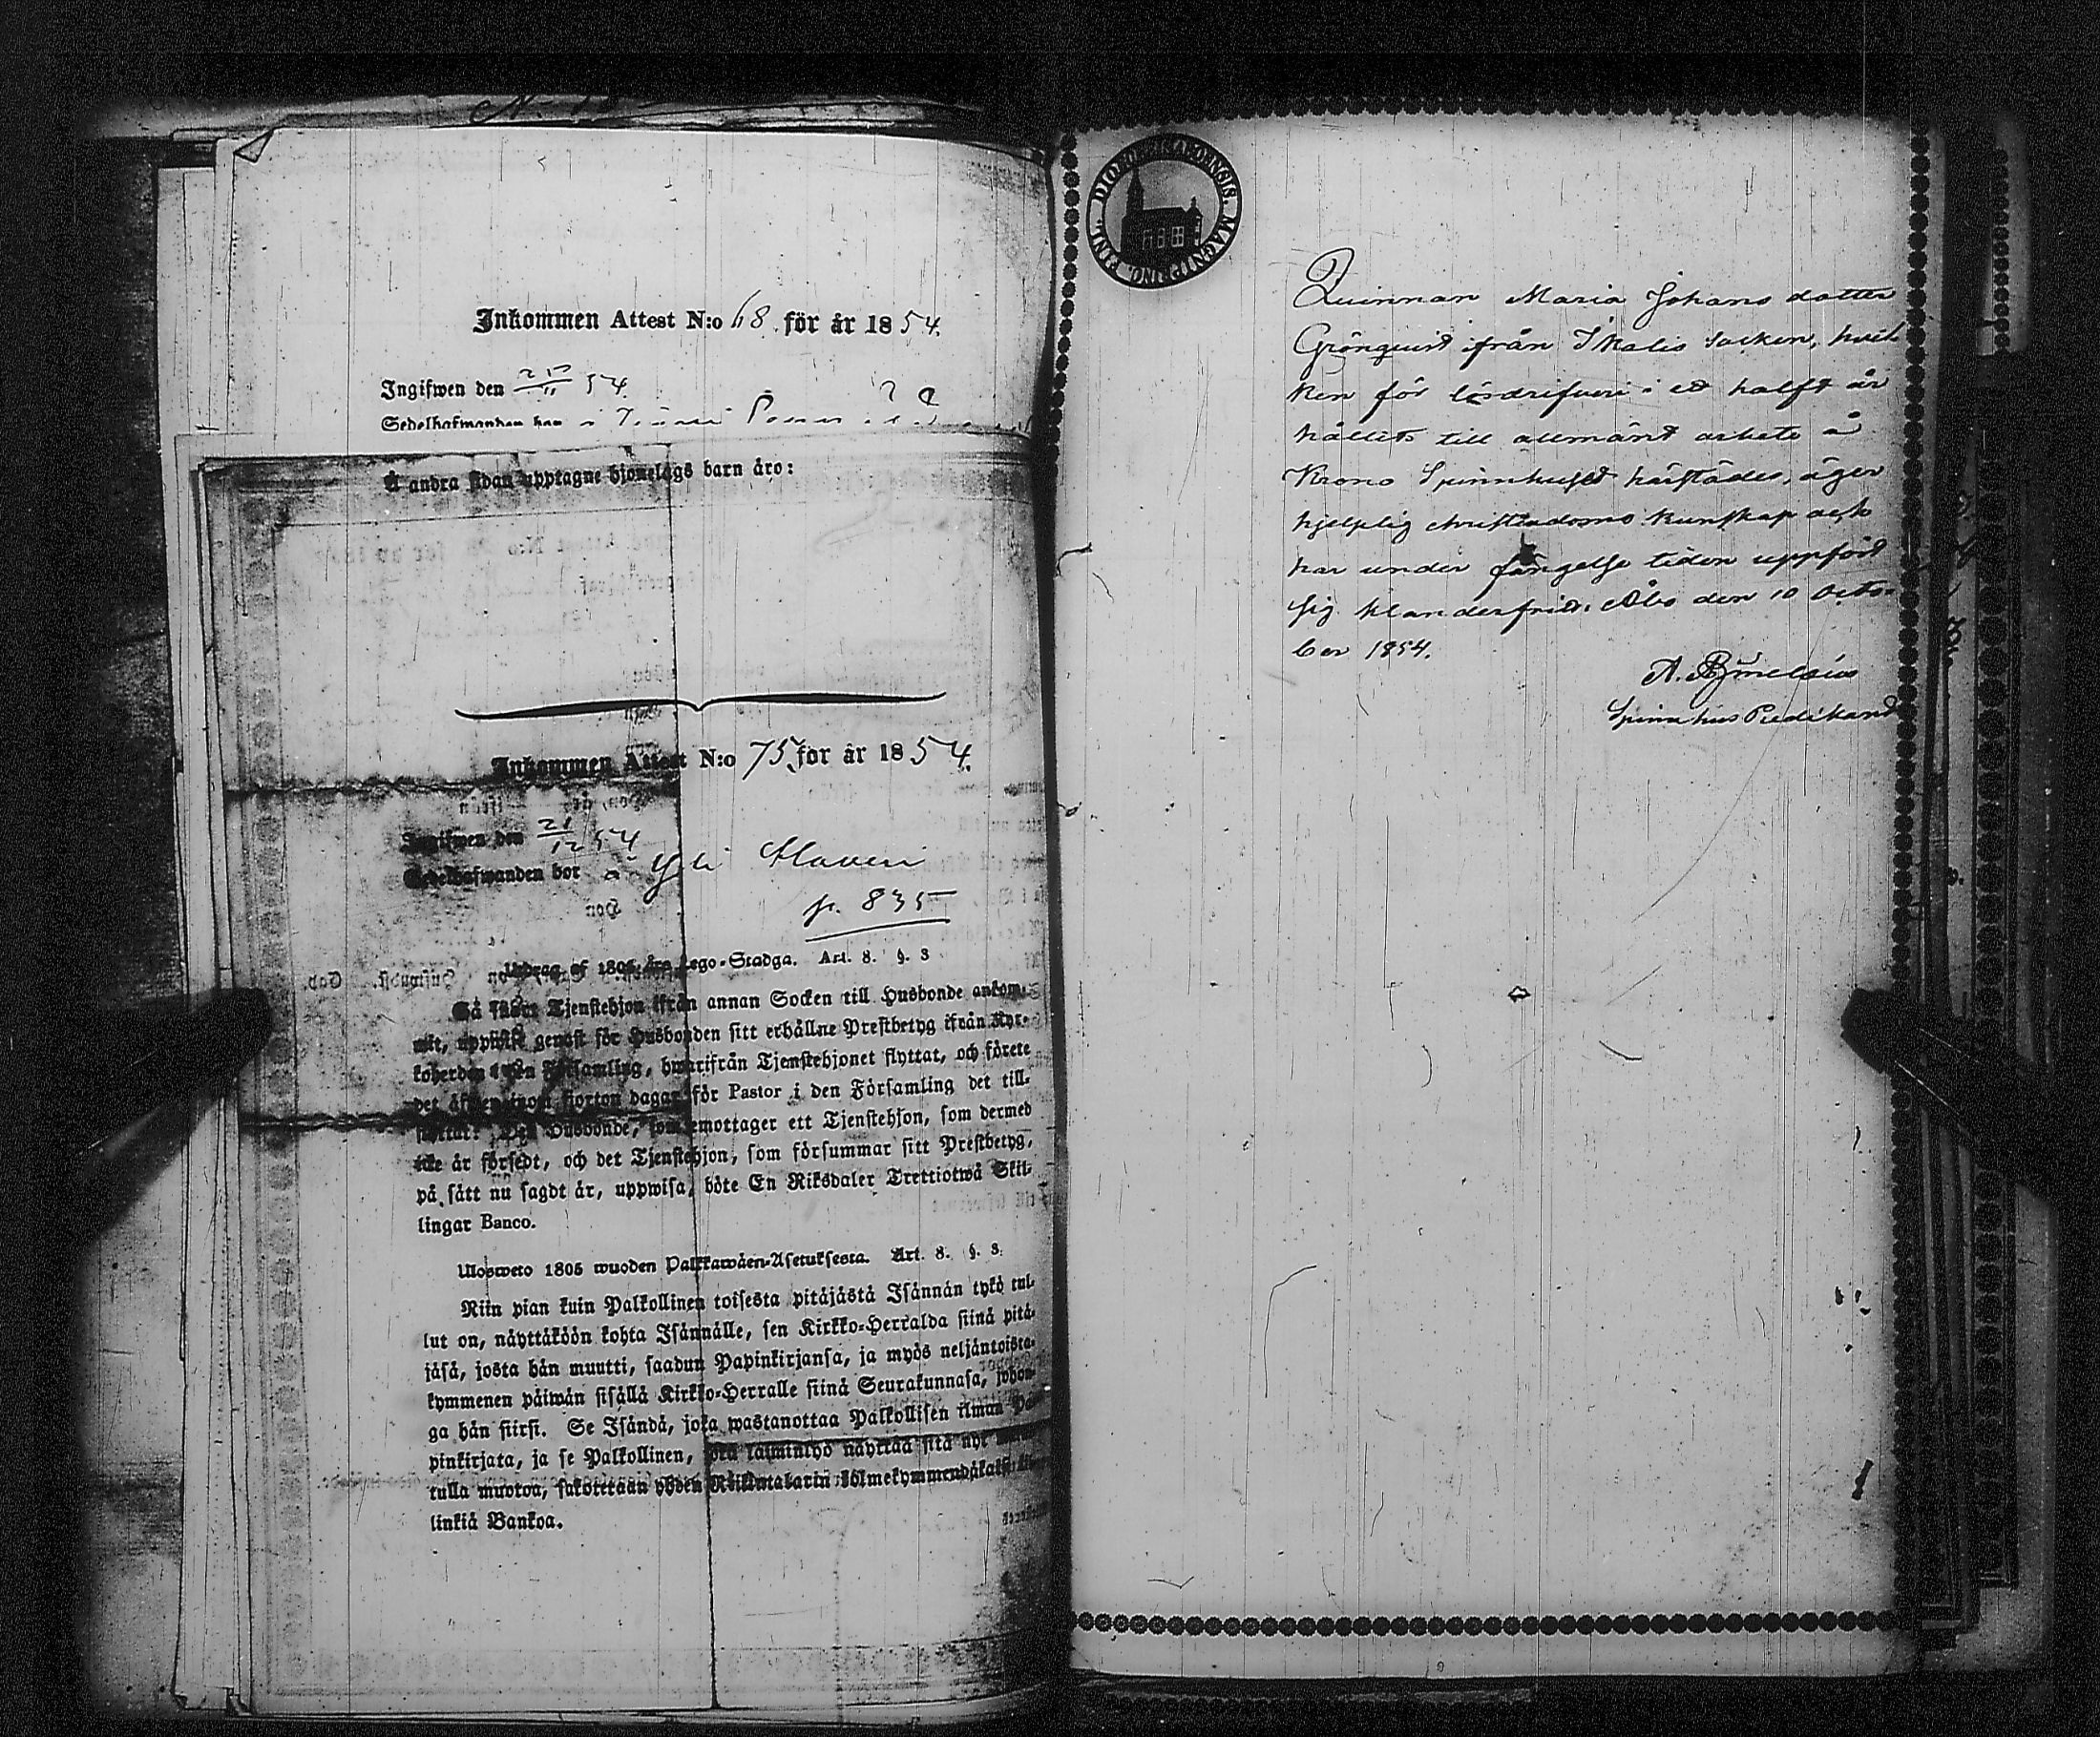 Inkommen Attest N:o 68. för år 1854.
Ingifwen den 25/11 54.
Sedelhafwanden bor i
Å andra sidan upptagne hjonelags barn äro:
Inkommen Attest N:o 75. för år 1854.
Ingifwen den 21/12 54
Sedelhafwanden bor å Yli
p. 835
Utdrag af 1805 års Lego-Stadga. Art. 8. §. 3
Så snart Tjenstehjon ifrån annan Socken till Husbonde ankom-
mit, uppwise genast för Husbonden sitt erhållne Prestbetyg ifrån Kyr-
koherden i den Församling, hwarifrån Tjenstehjonet flyttat, och förete
det äfwen inom fjorton dagar för Pastor i den Församling det till-
flyttat. Den Husbonde, som emottager ett Tjenstehjon, som dermed
icke är försedt, och det Tjenstehjon, som försummar sitt Prestbetyg,
på sätt nu sagdt är, uppwisa, böte En Riksdaler Trettiotwå Skil-
lingar Banco.
Ulosweto 1805 wuoden Palkkawäen-Asetuksesta. Art. 8. §. 3.
Niin pian kuin Palkollinen toisesta pitäjästä Isännän tykö tul-
lut on, näyttäköön kohta Isännälle, sen Kirkko-Herralda siinä pitä-
jäsä, josta hän muutti, saadun Papinkirjansa, ja myös neljäntoista-
kymmenen päiwän sisällä Kirkko-Herralle siinä Seurakunnasa, johon-
ga hän siirsi. Se Isändä, joka wastanottaa Palkollisen ilman Pa-
pinkirjata, ja se Palkollinen, joka laiminlyö näyttää sitä nyt
tulla muotoa, sakotetaan yhden Riikintalarin kolmekymmendäkaksi
linkiä Bankoa.
DIOECESIS ABOENSIS. MAGNI PRINC. FINL.
Quinnan Maria Johans dotter
Grönquist ifrån Ikalis Socken, hvil-
ken för lösdrifveri i ett halft år
hållits till allmänt arbete å
Krono Spinnhuset härstädes, äger
hjelplig christendoms kunskap och
har under fängelse tiden uppfört
sig klanderfritt. Åbo den 10 Octo-
ber 1854.
Spinnhus Predikant